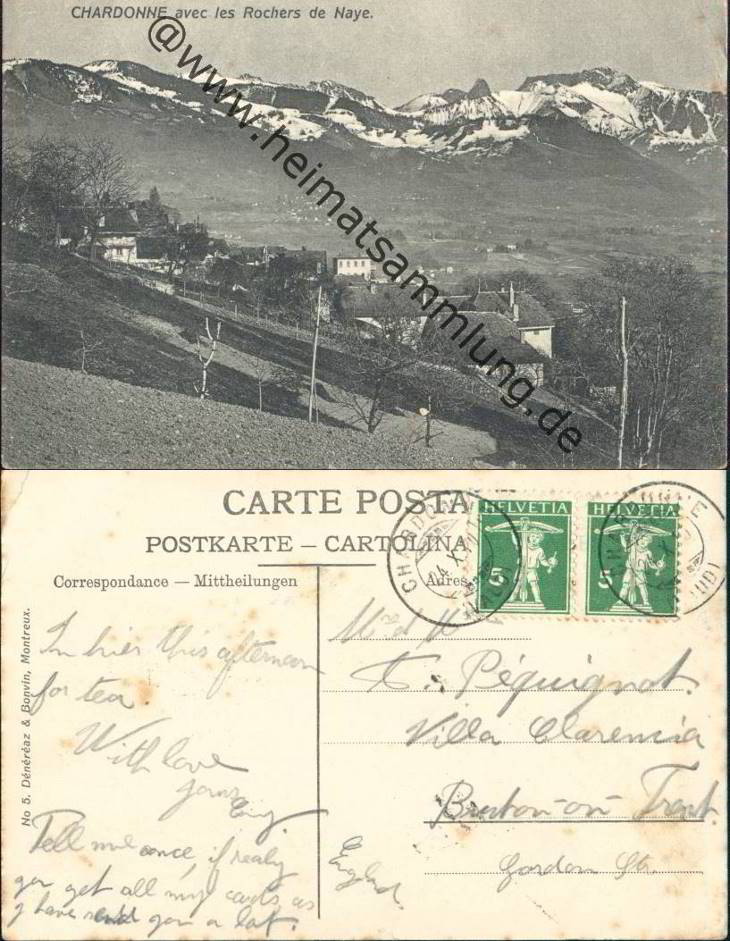 CHARDONNE avec les Rochers de Naye.
@www.heimatsammlung.de
CARTE POSTA
POSTKARTE – CARTOLINA
Correspondance — Mittheilungen
Adres
HELVETIA
5
HELVETIA
5
CHARDONNE
(VAUD)
No 5. Dénéréaz & Bonvin, Montreux.
In hier this afternoon
for tea
With love
yours
Tell me once, if really
you get all my cards, as
I have send you a lot.
T. Péquignot
Villa Clarencia
Burton-on-Trent
Gordon Str.
England.